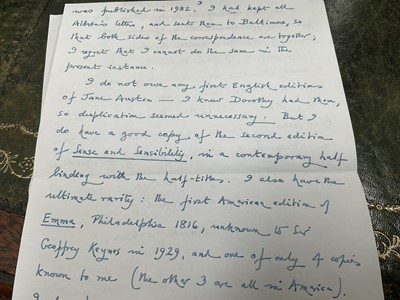 was published in 1982. I had kept all
Alberta's letters, and sent them to Baltimore, so
that both sides of the correspondence are together;
I regret that I cannot do the same in the
present instance.
I do not own any first English editions
of Jane Austen — I knew Dorothy had them,
so duplication seemed unnecessary. But I
do have a good copy of the second edition
of Sense and Sensibility, in a contemporary half
binding with the half-titles. I also have the
ultimate rarity: the first American edition of
Emma, Philadelphia 1816, unknown to Sir
Geoffrey Keynes in 1929, and one of only 4 copies
known to me (the other 3 are all in America).